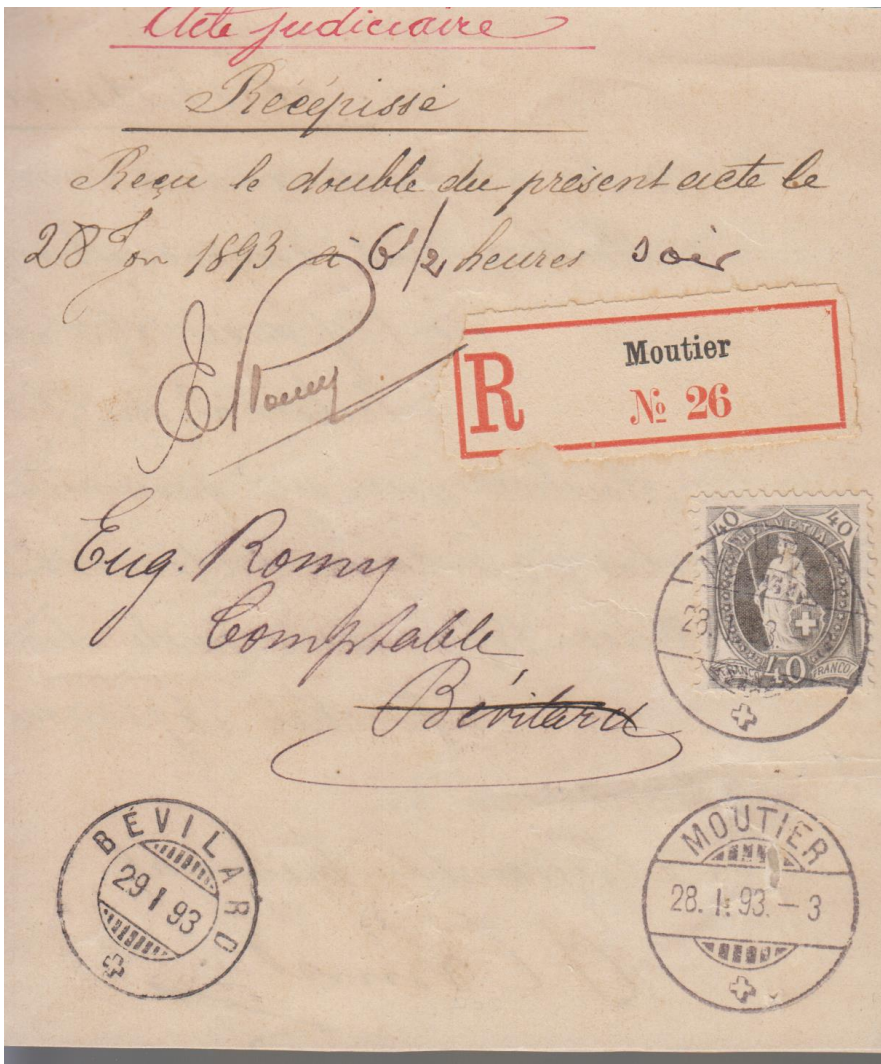 Acte judiciaire
Récépissé
Reçu le double du présent acte le
28 Jer 1893 à 6 1/2 heures soir
E Romy
R
Moutier
№ 26
Eug. Romy
Comptable
Bévilard
40 40
HELVETIA
28.
40
FRANCO
BÉVILARD
29 I 93
MOUTIER
28. I. 93. – 3